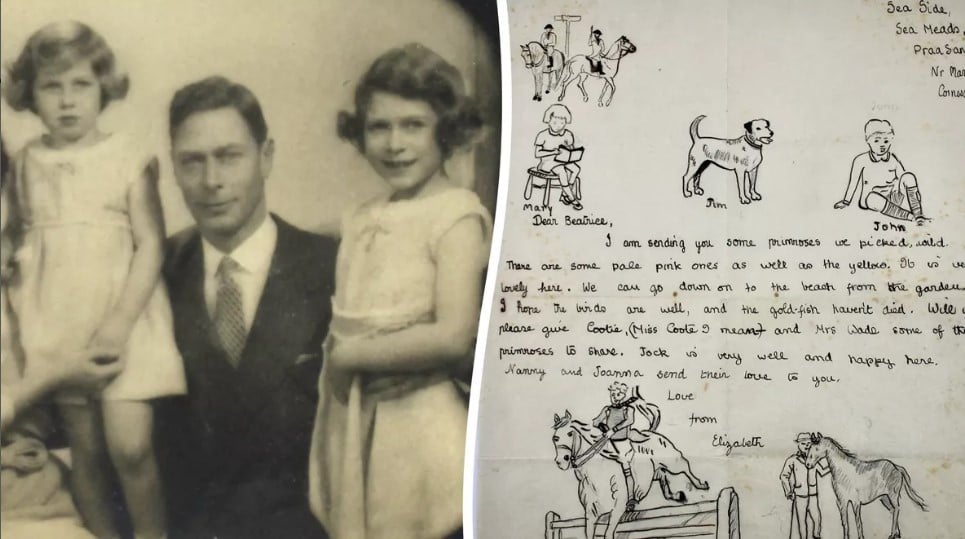 Sea Side,
Sea Meads,
Praa San
Nr Mar
Cornw
Mary
John
Dear Beatrice,
I am sending you some primroses we picked, wild.
There are some pale pink ones as well as the yellow. It is ve
lovely here. We can go down on to the beach from the garden
I hope the birds are well, and the gold-fish haven't died. Will
please give Cootie, (Miss Coote I mean) and Mrs Wade some of the
primroses to share. Jock is very well and happy here.
Nanny and Joanna send their love to you.
Love
from
Elizabeth